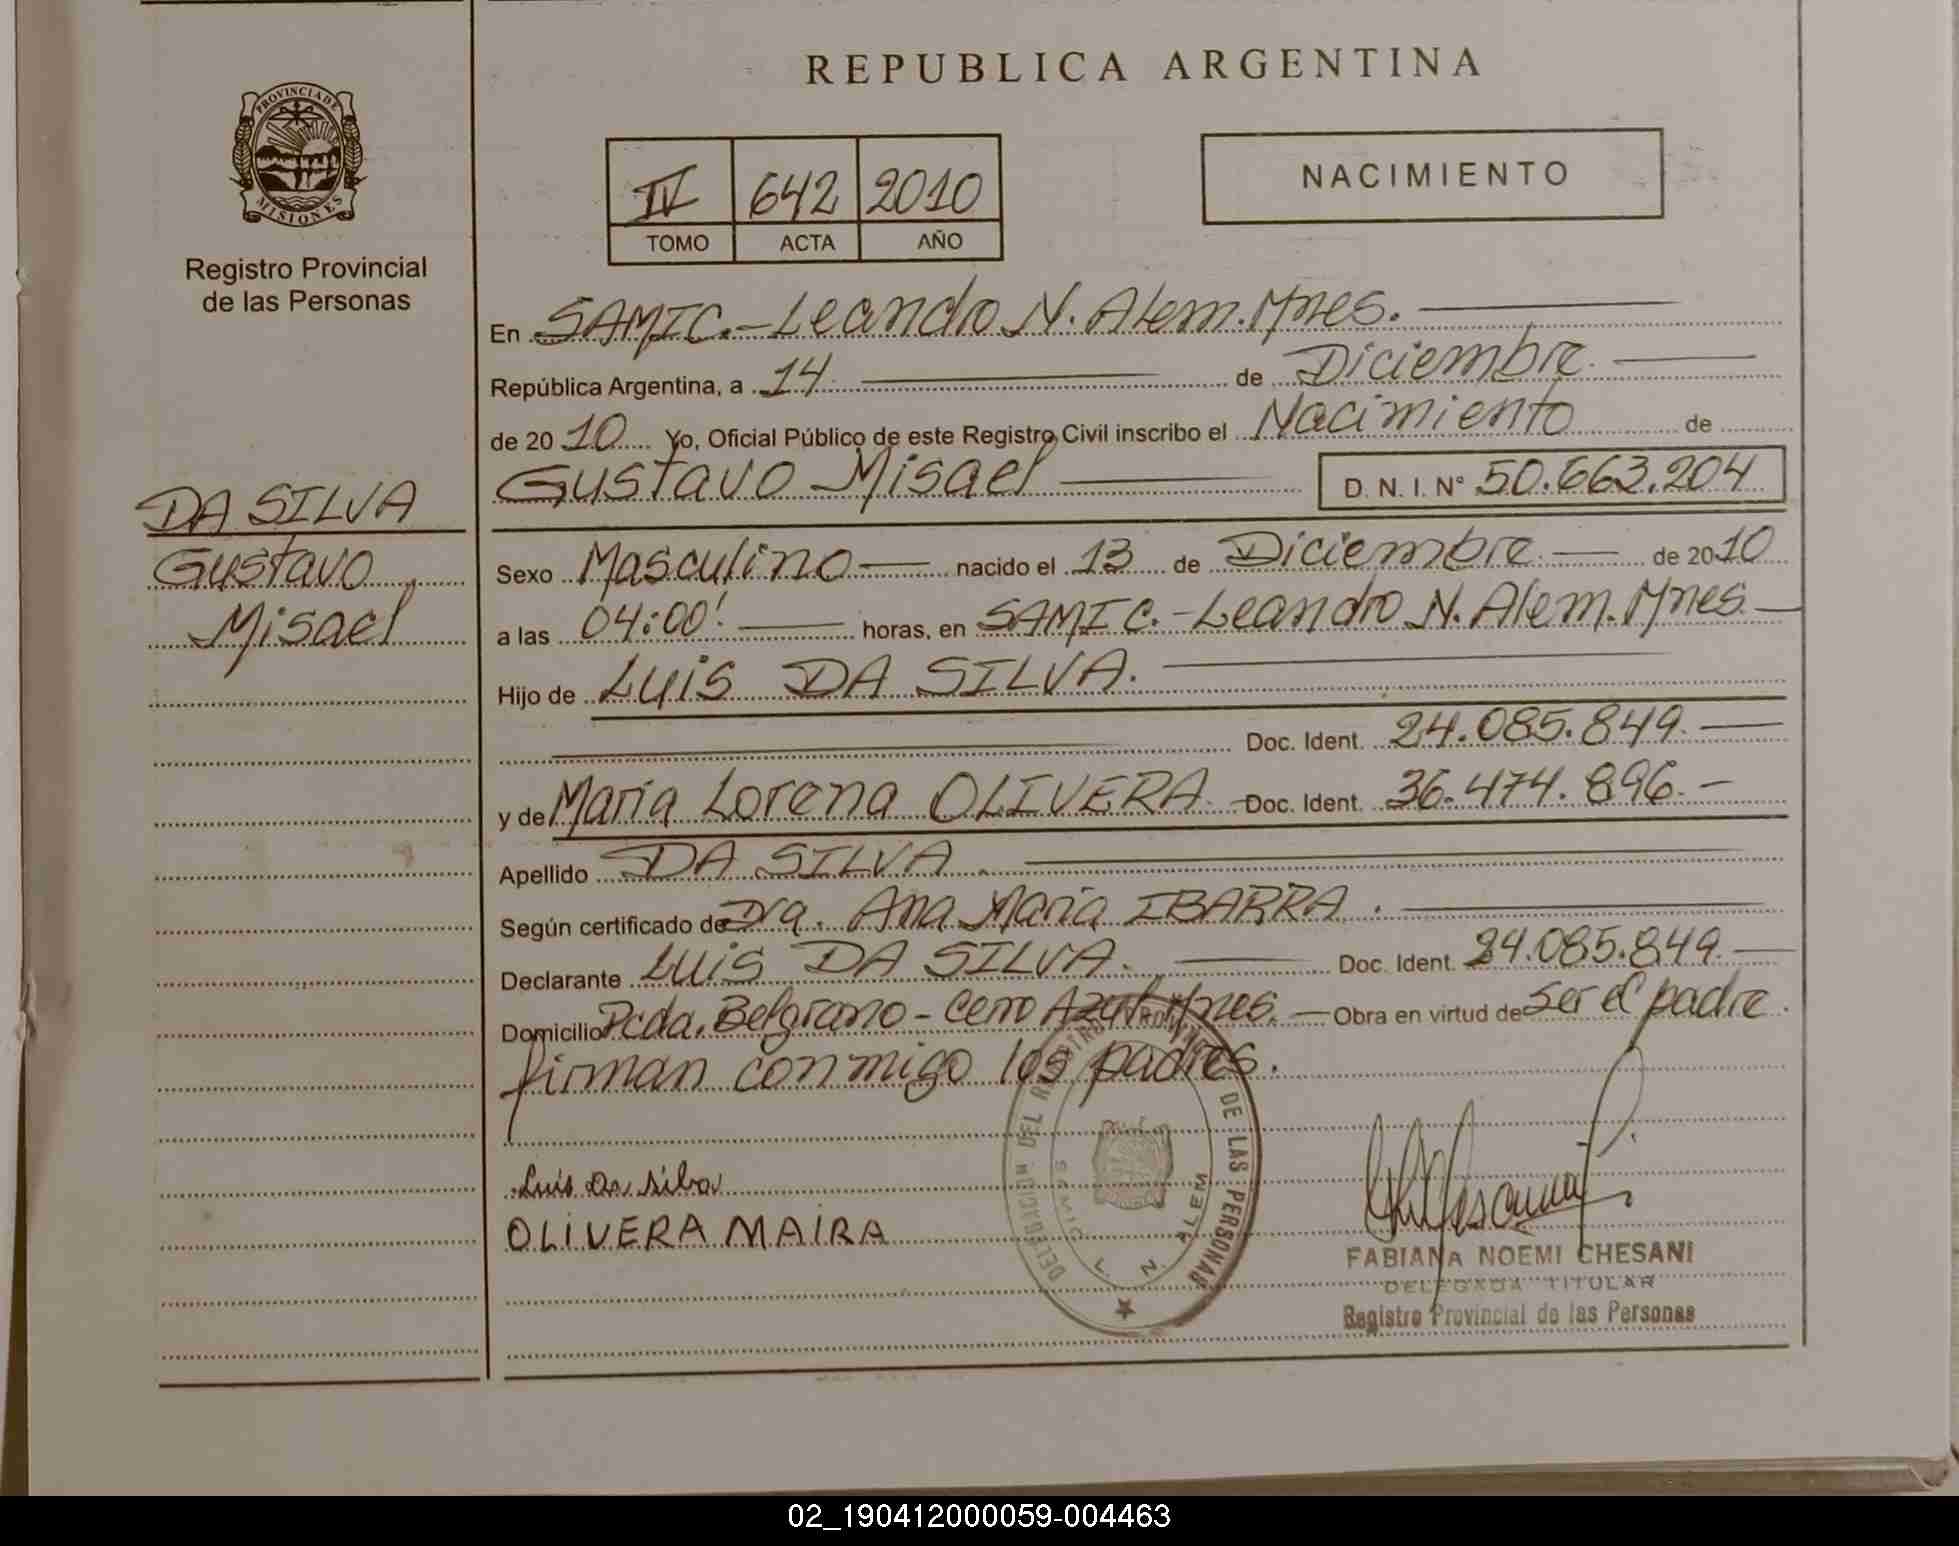 REPUBLICA ARGENTINA
PROVINCIA DE
MISIONES
Registro Provincial
de las Personas
IV 642 2010
TOMO ACTA AÑO
NACIMIENTO
En SAMIC.-Leandro N. Alem. Mnes.
República Argentina, a 14 de Diciembre
de 2010 Yo, Oficial Público de este Registro Civil inscribo el Nacimiento de
Gustavo Misael D.N.I. Nº 50.663.204
DA SILVA
Gustavo
Misael
Sexo Masculino nacido el 13 de Diciembre de 2010
a las 04:00' horas, en SAMIC.-Leandro N. Alem. Mnes.
Hijo de Luis DA SILVA.
Doc. Ident. 24.085.849.
y de Maria Lorena OLIVERA Doc. Ident. 36.474.896.
Apellido DA SILVA
Según certificado de Dra. Ana Maria IBARRA.
Declarante Luis DA SILVA. Doc. Ident. 24.085.849.
Domicilio Pcda. Belgrano - Cerro Azul Mnes. Obra en virtud de ser el padre.
firman conmigo los padres.
Luis Da silba
OLIVERA MAIRA
DELEGACION DEL REGISTRO PROVINCIAL DE LAS PERSONAS
SAMIC L. N. ALEM
FABIANA NOEMI CHESANI
DELEGADA TITULAR
Registro Provincial de las Personas
02_190412000059-004463